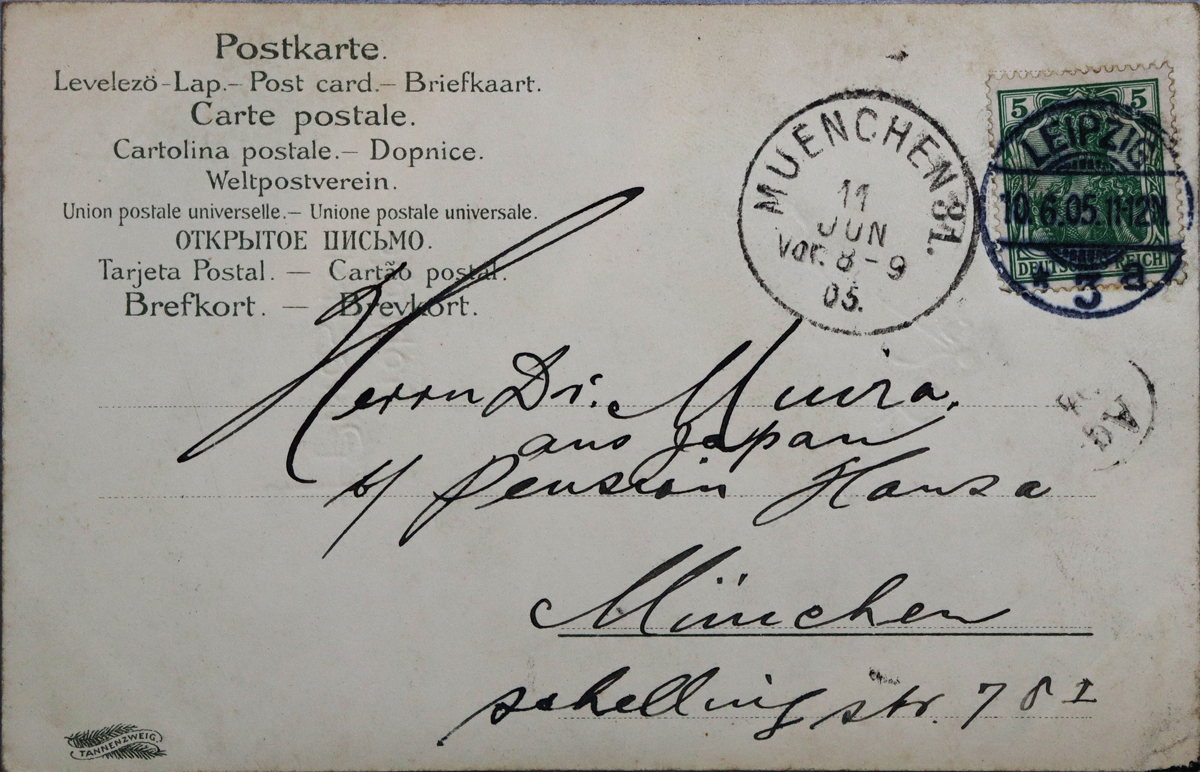 Postkarte.
Levelezö-Lap.– Post card.– Briefkaart.
Carte postale.
Cartolina postale.– Dopnice.
Weltpostverein.
Union postale universelle.– Unione postale universale.
ОТКРЫТОЕ ПИСЬМО.
Tarjeta Postal. — Cartão postal.
Brefkort. — Brevkort.
MUENCHEN 31.
11
JUN
Vor. 8-9
05.
5 5
LEIPZIG
10.6.05. 11-12V.
DEUTSCHES REICH
* 3 a
Herrn Dr. Muira.
aus Japan
b/ Pension Hansa
München
schellingstr. 78 I
Ag
TANNENZWEIG.